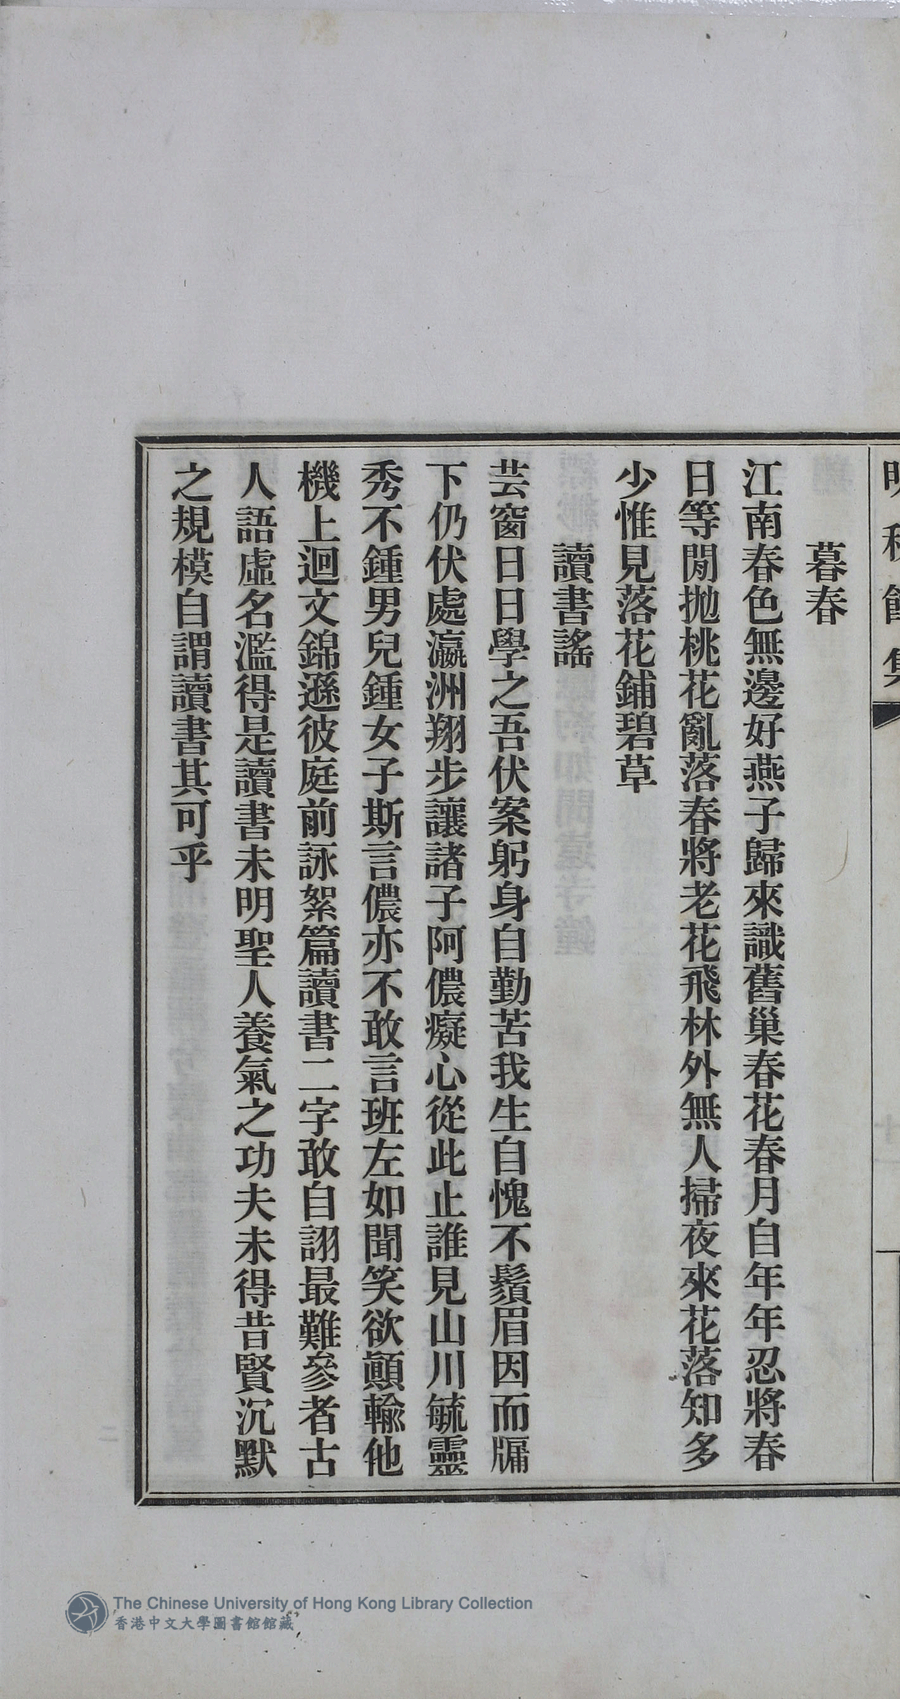 暮春
江南春色無邊好燕子歸來識舊巢春花春月自年年忍將春
日等閒拋桃花亂落春將老花飛林外無人掃夜來花落知多
少惟見落花鋪碧草
讀書謠
芸窗日日學之吾伏案躬身自勤苦我生自愧不鬚眉因而牖
下仍伏處瀛洲翔步讓諸子阿儂癡心從此止誰見山川毓靈
秀不鍾男兒鍾女子斯言儂亦不敢言班左如聞笑欲顛輸他
機上迴文錦遜彼庭前詠絮篇讀書二字敢自詡最難參者古
人語虛名濫得是讀書未明聖人養氣之功夫未得昔賢沉默
之規模自謂讀書其可乎
The Chinese University of Hong Kong Library Collection
香港中文大學圖書館館藏